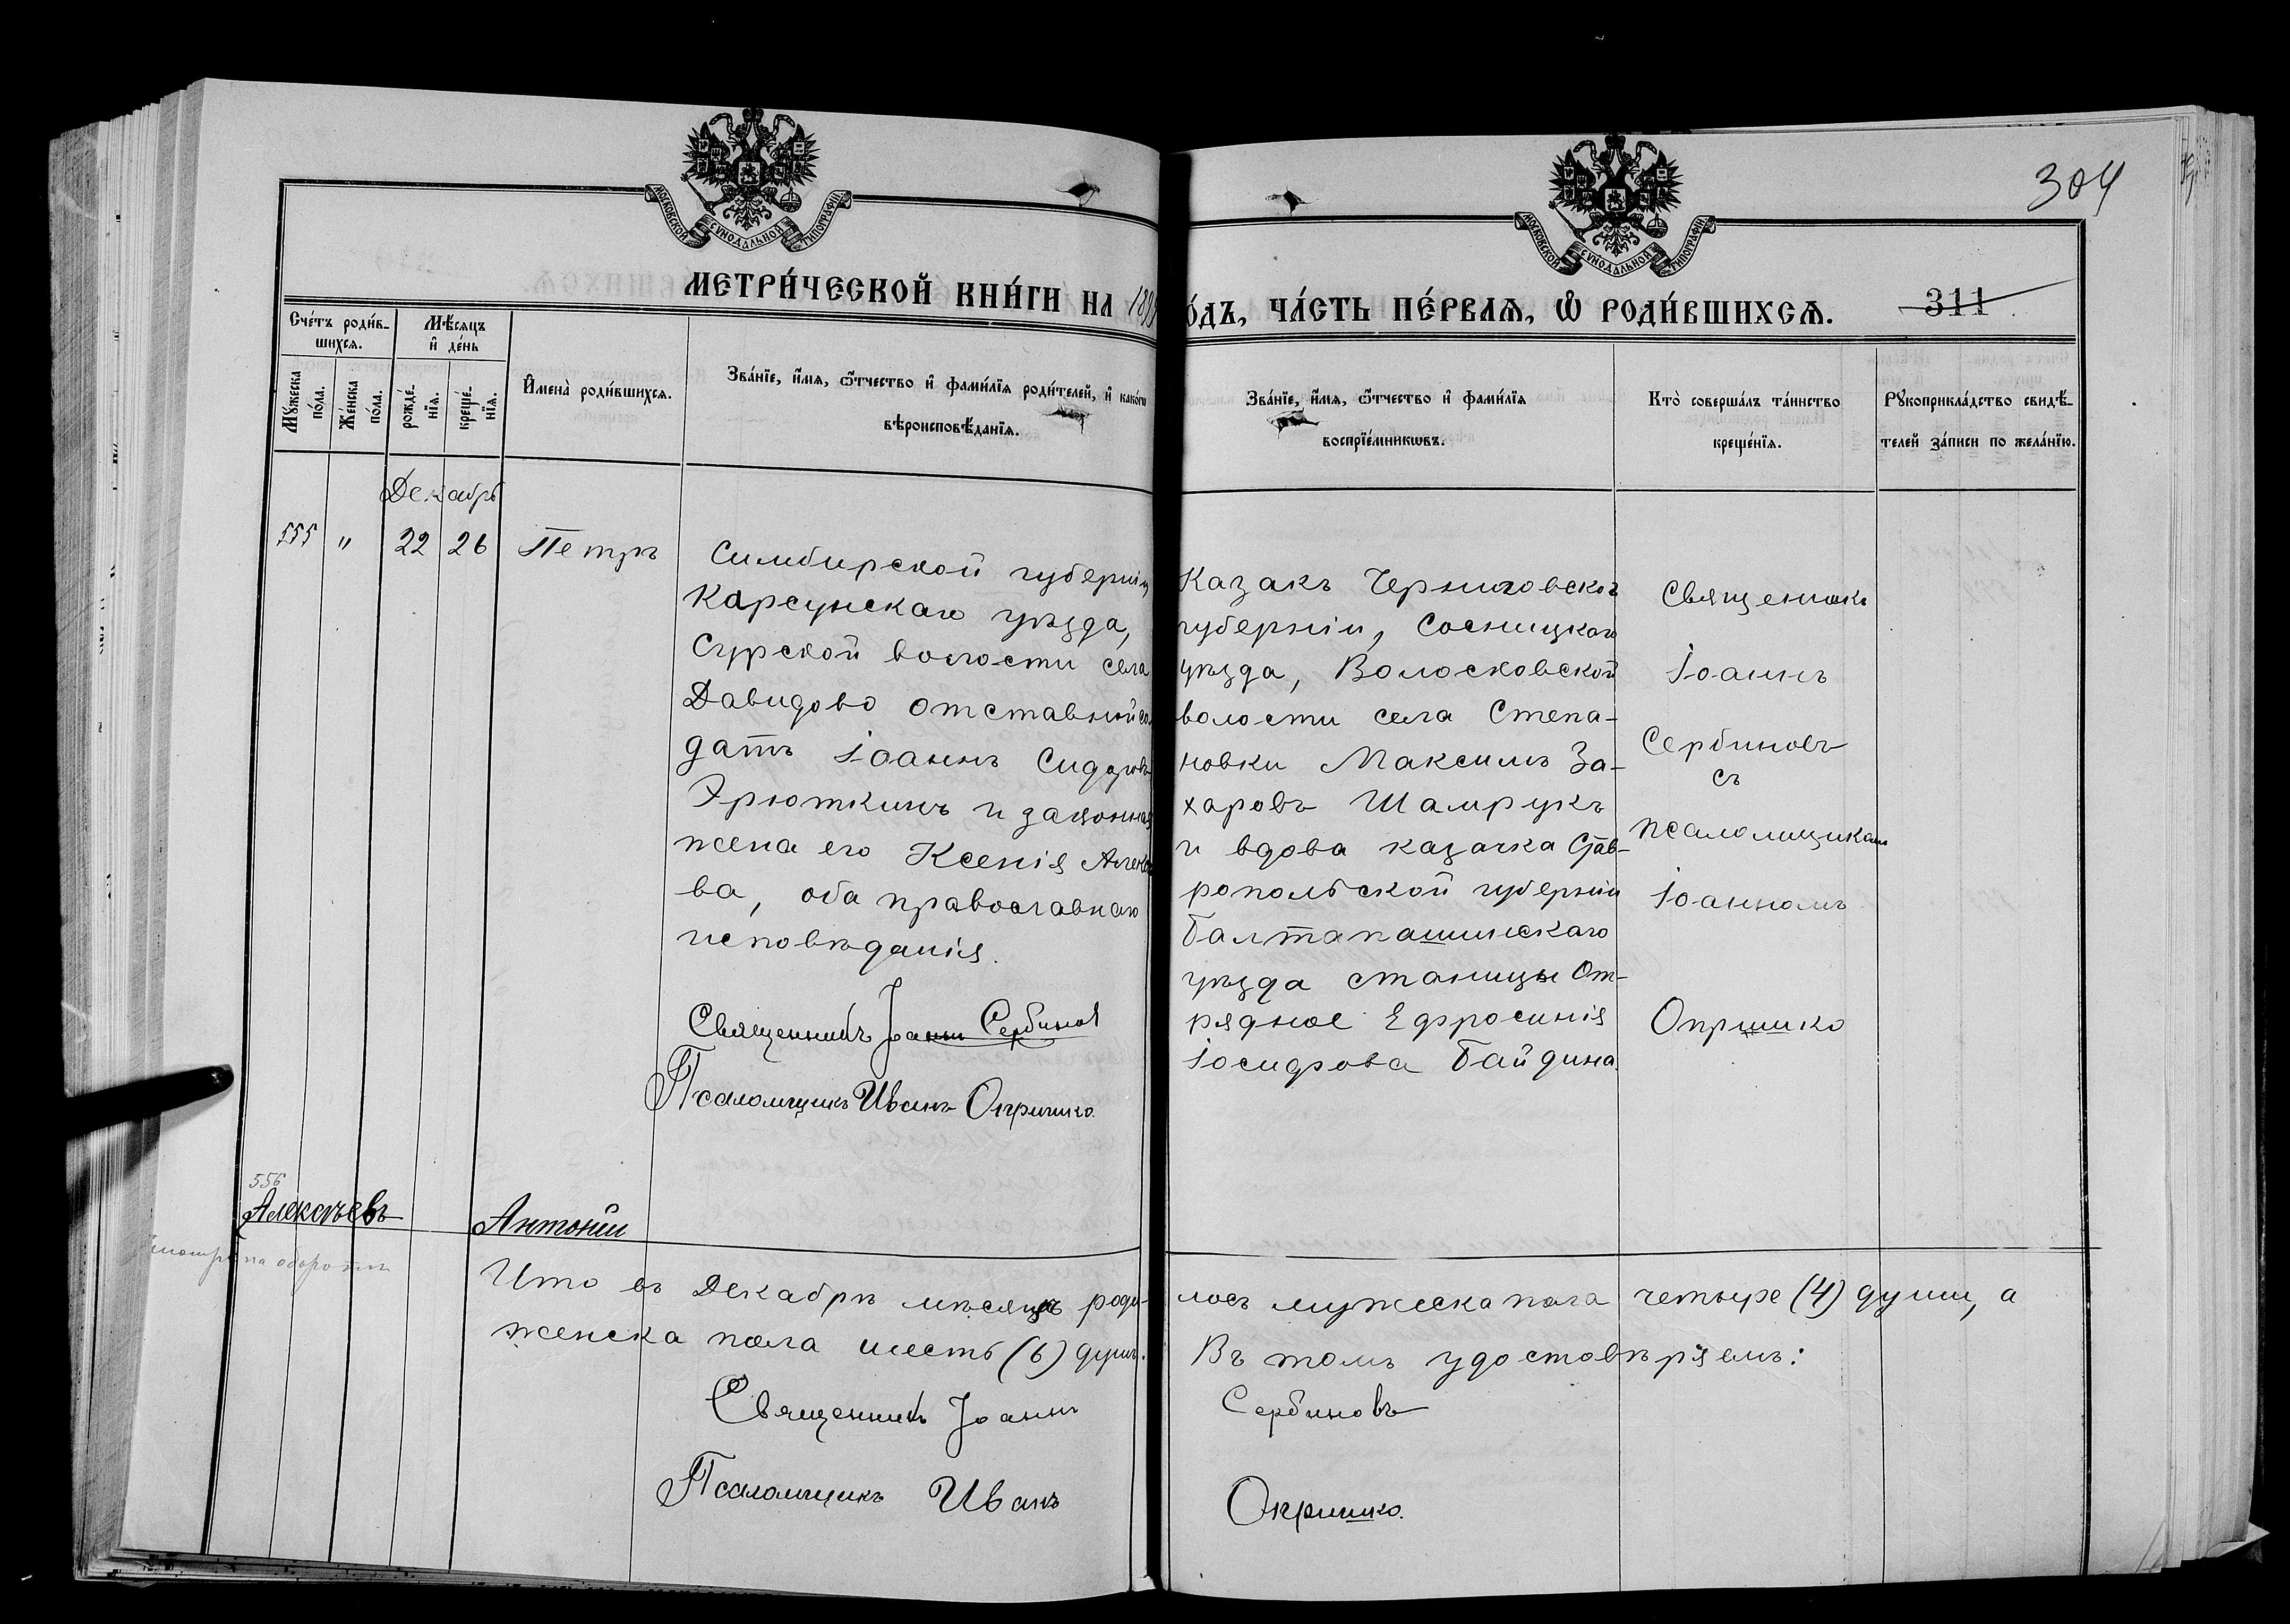 304
МОСКОВСКОЙ СѴНОДАЛЬНОЙ ТИПОГРАФІИ
МОСКОВСКОЙ СѴНОДАЛЬНОЙ ТИПОГРАФІИ
МЕТРИ́ЧЕСКОЙ КНИ́ГИ НА
О́ДЪ, ЧА́СТЬ ПЕ́РВАѦ, Ѡ҆ РОДИ́ВШИХСѦ.
311
Сче́тъ роди́в-
шихсѧ.
Мѹ́жеска
по́ла.
Же́нска
по́ла.
Мѣ́сѧцъ
и҆ де́нь
рожде́-
нїѧ.
креще́-
нїѧ.
И҆мена̀ роди́вшихсѧ.
Зва́нїе, и҆́мѧ, ѻ҆́тчество и҆ фами́лїѧ роди́телей, и҆ како́гѡ
вѣроисповѣ́данїѧ.
Зва́нїе, и҆́мѧ, ѻ҆́тчество и҆ фами́лїѧ
воспрїе́мникѡвъ.
Кто̀ соверша́лъ та́инство
креще́нїѧ.
Рѹкоприкла́дство свидѣ́-
телей за́писи по жела́нїю.
Декабрь
555 " 22 26 Петръ
Симбирской губерніи,
Карсунскаго уѣзда,
Сурской волости села
Давидово отставной сол
датъ Іоаннъ Сидоровъ
Эрюткинъ и законная
жена его Ксенія Алексѣе
ва, оба православнаго
исповѣданія.
Священникъ Іоаннъ Сербиновъ
Псаломщикъ Иванъ Опришко.
Казакъ Черниговской
губерніи, Сосницкаго
уѣзда, Волосковской
волости села Степа-
новки Максимъ За-
харовъ Шамрукъ
и вдова казачка Став-
ропольской губерніи
Балтапашинскаго
уѣзда станицы От-
рядное Ефросинія
Іосифова Байдина.
Священникъ
Іоаннъ
Сербиновъ
съ
псаломщикомъ
Іоанномъ
Опришко
556
Алексѣевъ Антоній
смотри на оборотѣ
Что въ Декабрѣ мѣсяцѣ роди-
лось мужеска пола четыре (4) души, а
женска пола шесть (6) душъ.
Въ томъ удостовѣряемъ:
Священникъ Іоаннъ
Сербиновъ
Псаломщикъ Иванъ
Опришко.